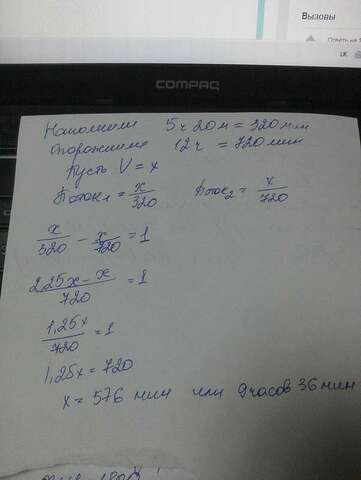 Вызовы
COMPAQ
Наполнили 5ч 20м = 320 мин
Опорожнили 12ч = 720 мин
Пусть V = x
Поток₁ = x/320 Поток₂ = x/720
x/320 - x/720 = 1
2,25x - x/720 = 1
1,25x/720 = 1
1,25x = 720
x = 576 мин или 9 часов 36 мин